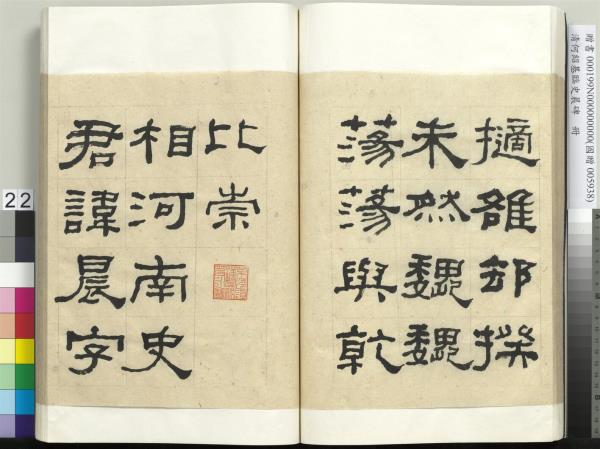 擿雒卻揆
未然魏魏
蕩蕩與乾
比崇
相河南史
君諱晨字
贈書 000199N000000000(國贈 005938)
清何紹基臨史晨碑 冊
22